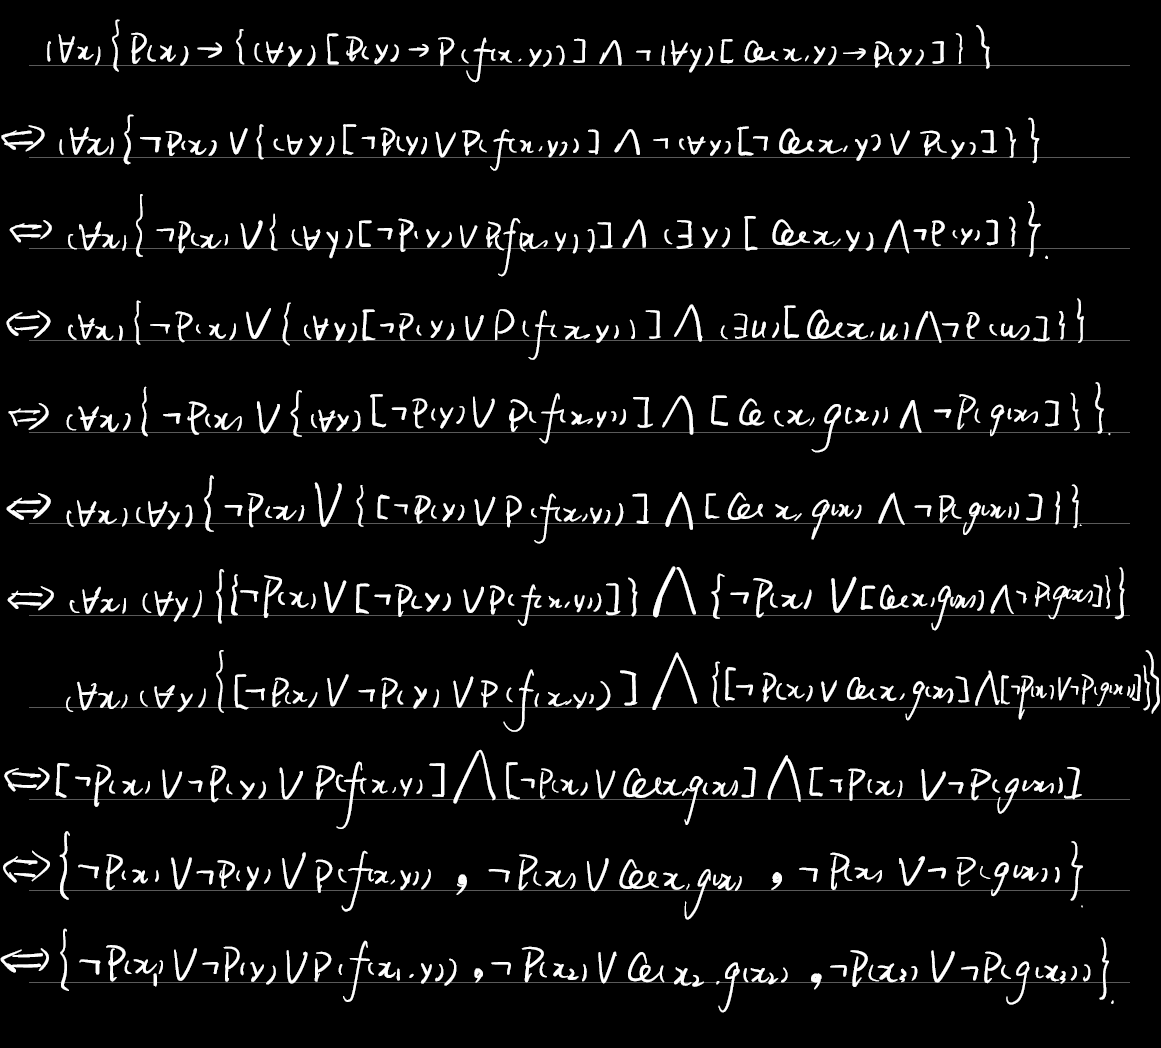 (∀x){P(x)→{(∀y)[P(y)→P(f(x,y))]∧¬(∀y)[Q(x,y)→P(y)]}}
⇔(∀x){¬P(x)∨{(∀y)[¬P(y)∨P(f(x,y))]∧¬(∀y)[¬Q(x,y)∨P(y)]}}
⇔(∀x){¬P(x)∨{(∀y)[¬P(y)∨P(f(x,y))]∧(∃y)[Q(x,y)∧¬P(y)]}}.
⇔(∀x){¬P(x)∨{(∀y)[¬P(y)∨P(f(x,y))]∧(∃u)[Q(x,u)∧¬P(u)]}}
⇔(∀x){¬P(x)∨{(∀y)[¬P(y)∨P(f(x,y))]∧[Q(x,g(x))∧¬P(g(x)]}}.
⇔(∀x)(∀y){¬P(x)∨{[¬P(y)∨P(f(x,y))]∧[Q(x,g(x)∧¬P(g(x))]}}.
⇔(∀x)(∀y){{¬P(x)∨[¬P(y)∨P(f(x,y))]}∧{¬P(x)∨[Q(x,g(x))∧¬P(g(x)]}}
(∀x)(∀y){[¬P(x)∨¬P(y)∨P(f(x,y))]∧{[¬P(x)∨Q(x,g(x)]∧[¬P(x)∨¬P(g(x))]}}
⇔[¬P(x)∨¬P(y)∨P(f(x,y)]∧[¬P(x)∨Q(x,g(x)]∧[¬P(x)∨¬P(g(x))]
⇔{¬P(x)∨¬P(y)∨P(f(x,y)),¬P(x)∨Q(x,g(x),¬P(x)∨¬P(g(x))}.
⇔{¬P(x₁)∨¬P(y)∨P(f(x₁,y)),¬P(x₂)∨Q(x₂,g(x₂),¬P(x₃)∨¬P(g(x₃))}.